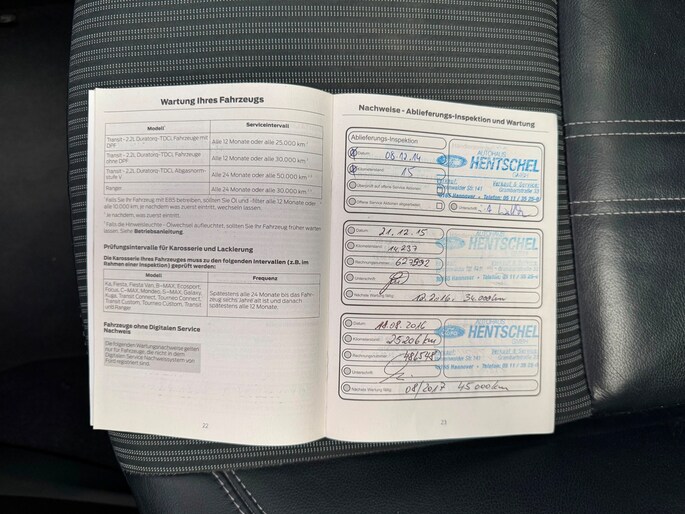 Wartung Ihres Fahrzeugs
Modell Serviceintervall
Transit - 2.2L Duratorq-TDCi, Fahrzeuge mit DPF Alle 12 Monate oder alle 25.000 km
Transit - 2.2L Duratorq-TDCi, Fahrzeuge ohne DPF Alle 12 Monate oder alle 30.000 km
Transit - 2.2L Duratorq-TDCi, Abgasnorm-
stufe V Alle 24 Monate oder alle 50.000 km
Ranger Alle 24 Monate oder alle 30.000 km
Falls Sie Ihr Fahrzeug mit E85 betreiben, sollten Sie Öl und -filter alle 12 Monate oder
alle 10.000 km, je nachdem was zuerst eintritt, wechseln lassen.
Je nachdem, was zuerst eintritt.
Falls die Hinweisleuchte - Ölwechsel aufleuchtet, sollten Ihr Fahrzeug früher warten
lassen. Siehe Betriebsanleitung.
Prüfungsintervalle für Karosserie und Lackierung
Die Karosserie Ihres Fahrzeuges muss zu den folgenden Intervallen (z.B. im
Rahmen einer Inspektion) geprüft werden:
Modell Frequenz
Ka, Fiesta, Fiesta Van, B-MAX, Ecosport,
Focus, C-MAX, Mondeo, S-MAX, Galaxy,
Kuga, Transit Connect, Tourneo Connect,
Transit Custom, Tourneo Custom, Transit
und Ranger
Spätestens alle 24 Monate bis das Fahr-
zeug sechs Jahre alt ist und danach
spätestens alle 12 Monate.
Fahrzeuge ohne Digitalen Service
Nachweis
Die folgenden Wartungsnachweise gelten
nur für Fahrzeuge, die nicht in dem
Digitalen Service Nachweissystem von
Ford registriert sind.
22
Nachweise - Ablieferungs-Inspektion und Wartung
Ablieferungs-Inspektion
Datum 08.12.14
Kilometerstand 15
Überprüft auf offene Service Aktionen
Offene Service Aktionen abgearbeitet
Unterschrift
AUTOHAUS
HENTSCHEL
GmbH
Verkauf & Service
Hannover • Telefon: 05 11 / 35 29-0
Datum 21.12.15
Kilometerstand 14.237
Rechnungsnummer 627592
Unterschrift
Nächste Wartung fällig 12.2016, 34.000km
HENTSCHEL
Datum 11.08.2016
Kilometerstand 25206 km
Rechnungsnummer 486548
Unterschrift
Nächste Wartung fällig 08/2017 45000km
HENTSCHEL
Verkauf & Service
30165 Hannover • Telefon: 05 11 / 35 29-0
23